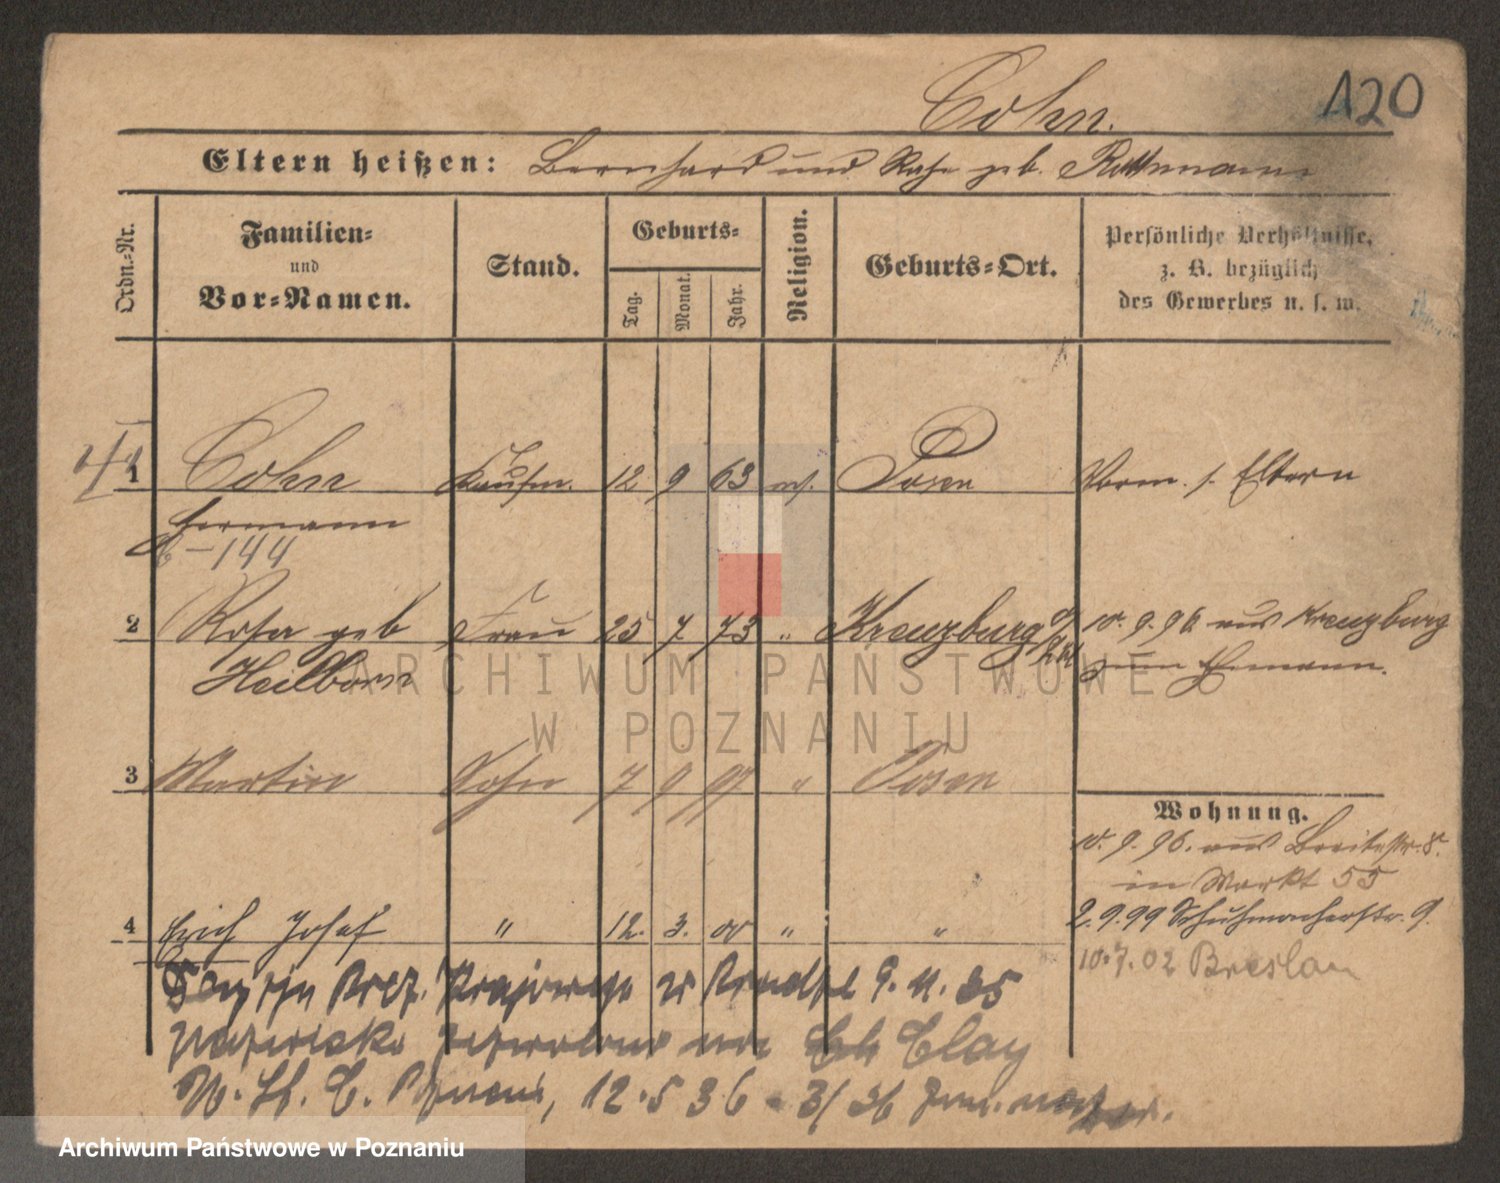 Cohn.
120
Eltern heißen: Bernhard und Rosa geb.
Ordn.-Nr.
Familien- und Vor-Namen.
Stand.
Geburts-
Tag.
Monat.
Jahr.
Religion.
Geburts-Ort.
Persönliche Verhältnisse, z. B. bezüglich des Gewerbes u. s. w.
1 Cohn Kaufm. 12 9 63 mos. Posen Vorm. s. Eltern
Hermann
2
144
2 Rosa geb Frau 25 7 73 " Kreuzburg 10. 9. 96 aus Kreuzburg
Heilborn zum Ehemann.
3 Martin Sohn 7 9 97 " Posen
Wohnung.
10. 9. 96. aus Breitestr. 8.
in Markt 55
4 Erich Josef " 12. 3. 00 " "
2. 9. 99 Schuhmacherstr. 9.
10.7.02 Breslau
9. 11. 35
na Clay
12.5 36
ARCHIWUM PAŃSTWOWE
W POZNANIU
Archiwum Państwowe w Poznaniu